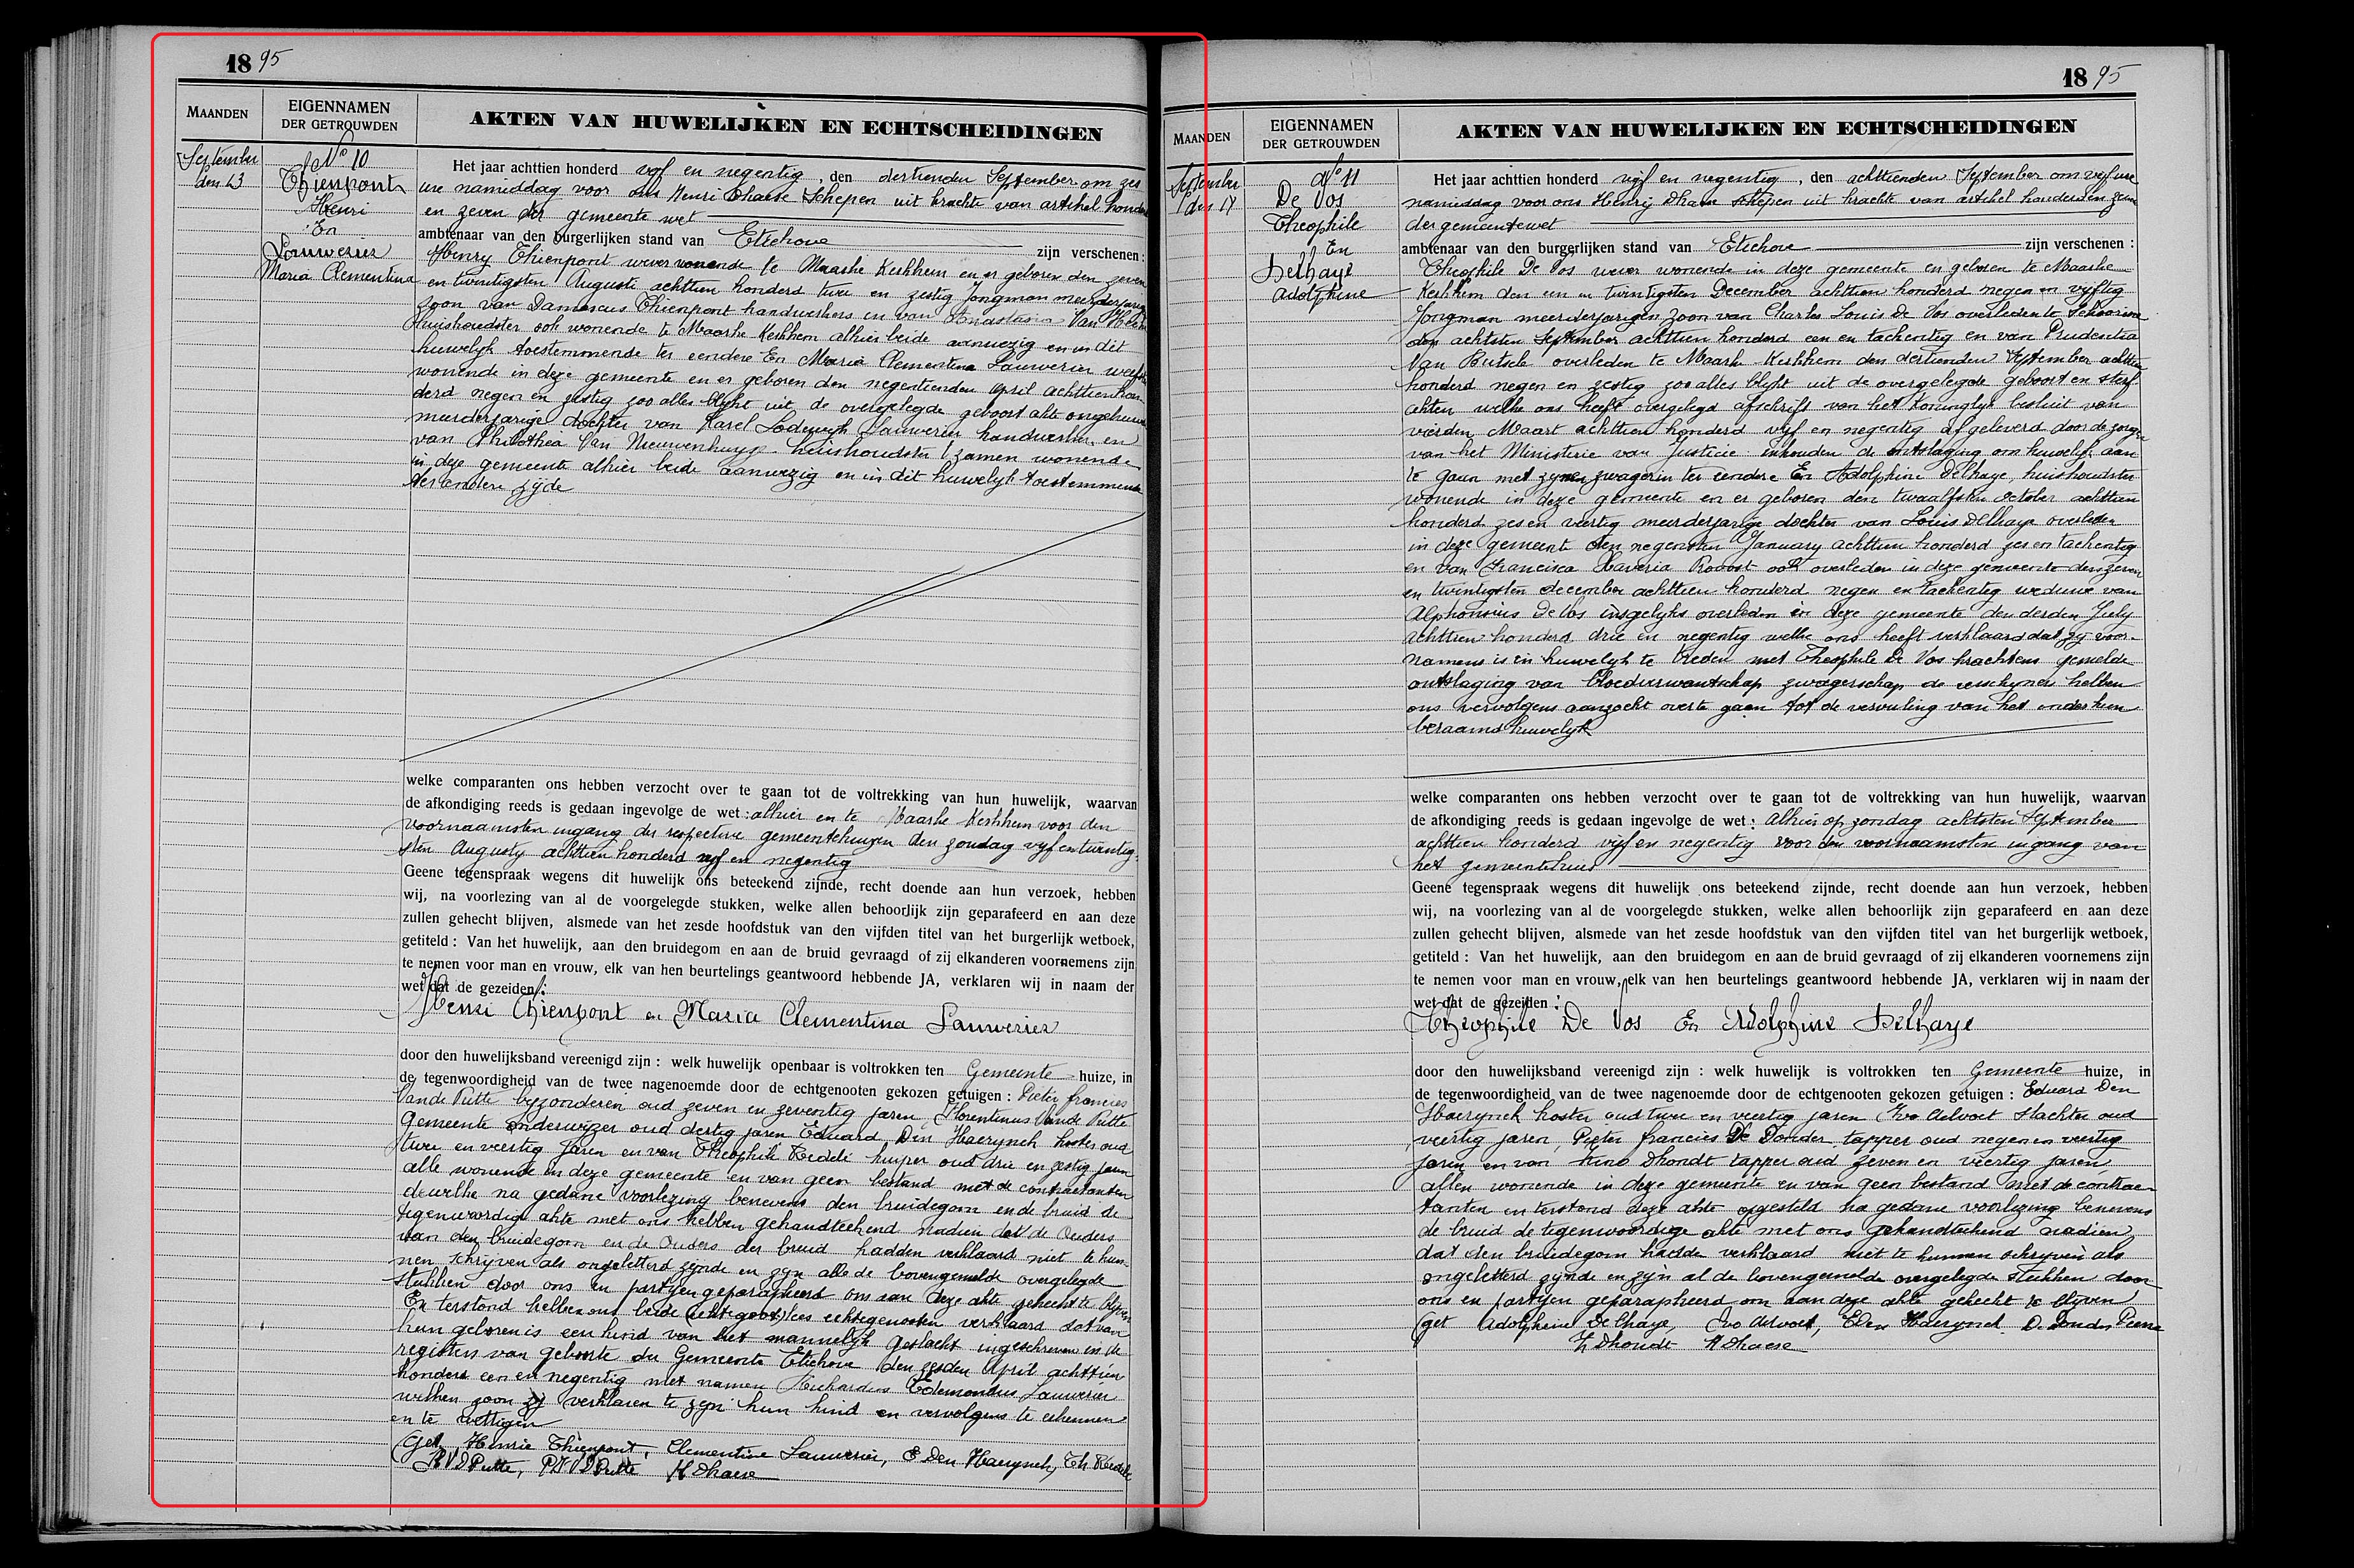 1895
MAANDEN
EIGENNAMEN
DER GETROUWDEN
AKTEN VAN HUWELIJKEN EN ECHTSCHEIDINGEN
September
den 13
No 10
Thienpont
Henri
En
Lauwerier
Maria Clementina
Het jaar achttien honderd vyf en negentig, den dertienden September om zes
ure namiddag voor ons Henri Dhaese Schepen uit krachte van artikel honderd
en zeven der gemeente wet
ambtenaar van den burgerlijken stand van Etichove zijn verschenen:
Henry Thienpont wever wonende te Maarke Kerkhem en er geboren den zeven
en twintigsten Augusti achttien honderd twee en zestig Jongman meerderjarige
zoon van Damascus Thienpont handwerkers en van Anastasia Van
huishoudster ook wonende te Maarke Kerkhem alhier beide aanwezig en in dit
huwelyk toestemmende ter eendere En Maria Clementina Lauwerier
wonende in deze gemeente en er geboren den negentienden April achttien hon
derd negen en zestig zoo alles blykt uit de overgelegde geboort akte ongehuwde
meerderjarige dochter van Karel Lodewyk Lauwerier handwerker en
van Philothea Van Nieuwenhuyse huishoudster zamen wonende
in deze gemeente alhier beide aanwezig en in dit huwelyk toestemmende
ter andere zyde
welke comparanten ons hebben verzocht over te gaan tot de voltrekking van hun huwelijk, waarvan
de afkondiging reeds is gedaan ingevolge de wet: alhier en te Maarke Kerkhem voor den
voornaamsten ingang der respective gemeentehuizen den zondag vyf en twintig-
sten Augusty achttien honderd vyf en negentig
Geene tegenspraak wegens dit huwelijk ons beteekend zijnde, recht doende aan hun verzoek, hebben
wij, na voorlezing van al de voorgelegde stukken, welke allen behoorlijk zijn geparafeerd en aan deze
zullen gehecht blijven, alsmede van het zesde hoofdstuk van den vijfden titel van het burgerlijk wetboek,
getiteld: Van het huwelijk, aan den bruidegom en aan de bruid gevraagd of zij elkanderen voornemens zijn
te nemen voor man en vrouw, elk van hen beurtelings geantwoord hebbende JA, verklaren wij in naam der
wet dat de gezeiden:
Henri Thienpont en Maria Clementina Lauwerier
door den huwelijksband vereenigd zijn: welk huwelijk openbaar is voltrokken ten Gemeente huize, in
de tegenwoordigheid van de twee nagenoemde door de echtgenooten gekozen getuigen: Pieter francies
Vande Putte byzonderen oud zeven en zeventig jaren, Florentinus Vande Putte
Gemeente onderwijzer oud dertig jaren Eduard Den Haerynck koster oud
twee en veertig Jaren en van Theophile Redelé kuiper oud drie en zestig jaren
alle wonende in deze gemeente en van geen bestand met de contractanten
dewelke na gedane voorlezing benevens den bruidegom en de bruid de
tegenwoordige akte met ons hebben gehandteekend nadien dat de Ouders
van den bruidegom en de Ouders der bruid hadden verklaard niet te kun-
nen schrijven als ongeletterd zynde en zyn alle de bovengemelde overgelegde
stukken door ons en partyen geparapheerd om aan deze akte gehecht te blijven
En terstond hebben ons beide (echtgoot) lees echtgenooten verklaard dat van
hun geboren is een kind van het mannelyk geslacht ingeschreven in de
registers van geboorte der Gemeente Etichove den zesden April achttien
honderd een en negentig met namen Richardus Edemondus Lauwerier
welken zoon zy verklaren te zyn hun kind en vervolgens te erkennen
en te wettigen
(get Henrie Thienpont, Clementine Lauwerier, E Den Haerynck, Th Redelé
P.F.V.D.Putte H Dhaese
1895
MAANDEN
EIGENNAMEN
DER GETROUWDEN
AKTEN VAN HUWELIJKEN EN ECHTSCHEIDINGEN
September
den 18
No 11
De Vos
Theophile
En
Delhaye
Adolphine
Het jaar achttien honderd vijf en negentig, den achttienden September om vijf ure
namiddag voor ons Henrij Dhaese schepen uit krachte van artikel honderd en zeven
der gemeentewet
ambtenaar van den burgerlijken stand van Etichove zijn verschenen:
Theophile De Vos wever wonende in deze gemeente en geboren te Maarke
Kerkhem den een en twintigsten December achttien honderd negen en vyftig
Jongman meerderjarigen zoon van Charles Louis De Vos overleden te Schoorisse
den achtsten September achttien honderd een en tachentig en van Prudentia
Van Butsele overleden te Maarke Kerkhem den dertienden September achttien
honderd negen en zestig zoo alles blykt uit de overgelegde geboort en sterf
akten welke ons heeft overgelegd afschrift van het Koninglyk besluit van
vierden Maart achttien honderd vijf en negentig afgeleverd door de zorgen
van het Ministerie van Justicie inhouden de ontslaging om huwelijk aan
te gaan met zyne zwagerin ter eendere En Adolphine Delhaye, huishoudster
wonende in deze gemeente en er geboren den twaalfsten october achttien
honderd zes en veertig meerderjarige dochter van Louis Delhaye overleden
in deze gemeente den negensten January achttien honderd zes en tachentig
en van Francisca Xaveria Rovost ook overleden in deze gemeente den zeven
en twintigsten december achttien honderd negen en tachentig weduwe van
Alphonsius De Vos insgelyks overleden in deze gemeente den derden July
achttien honderd drie en negentig welke ons heeft verklaard dat zy voor-
namens is in huwelyk te treden met Theophile De Vos krachtens gemelde
ontslaging van bloedverwantschap zwagerschap de verschyners hebben
ons vervolgens aanzocht over te gaan tot de vervuling van het onder hun
beraamd huwelyk
welke comparanten ons hebben verzocht over te gaan tot de voltrekking van hun huwelijk, waarvan
de afkondiging reeds is gedaan ingevolge de wet: Alhier op zondag achtsten September
achttien honderd vijf en negentig voor den voornaamsten ingang van
het gemeentehuis
Geene tegenspraak wegens dit huwelijk ons beteekend zijnde, recht doende aan hun verzoek, hebben
wij, na voorlezing van al de voorgelegde stukken, welke allen behoorlijk zijn geparafeerd en aan deze
zullen gehecht blijven, alsmede van het zesde hoofdstuk van den vijfden titel van het burgerlijk wetboek,
getiteld: Van het huwelijk, aan den bruidegom en aan de bruid gevraagd of zij elkanderen voornemens zijn
te nemen voor man en vrouw, elk van hen beurtelings geantwoord hebbende JA, verklaren wij in naam der
wet dat de gezeiden:
Theophile De Vos En Adolphine Delhaye
door den huwelijksband vereenigd zijn: welk huwelijk is voltrokken ten Gemeente huize, in
de tegenwoordigheid van de twee nagenoemde door de echtgenooten gekozen getuigen: Eduard Den
Haerynck koster oud twee en veertig jaren Ivo Aelvoet slachter oud
veertig jaren, Pieter francies De Donder tapper oud negen en veertig
jaren en van Dhondt tapper oud zeven en veertig jaren
allen wonende in deze gemeente en van geen bestand met de contrac-
tanten en terstond deze akte opgesteld na gedane voorlezing benevens
de bruid de tegenwoordige akte met ons gehandteekend nadien
dat den bruidegom hadde verklaard niet te kunnen schrijven als
ongeletterd zynde en zyn al de bovengemelde overgelegde stukken door
ons en partyen geparapheerd om aan deze akte gehecht te blijven
(get Adolphine Delhaye, Ivo Aelvoet, E Den Haerynck De Donder Pierre
Dhondt H Dhaese